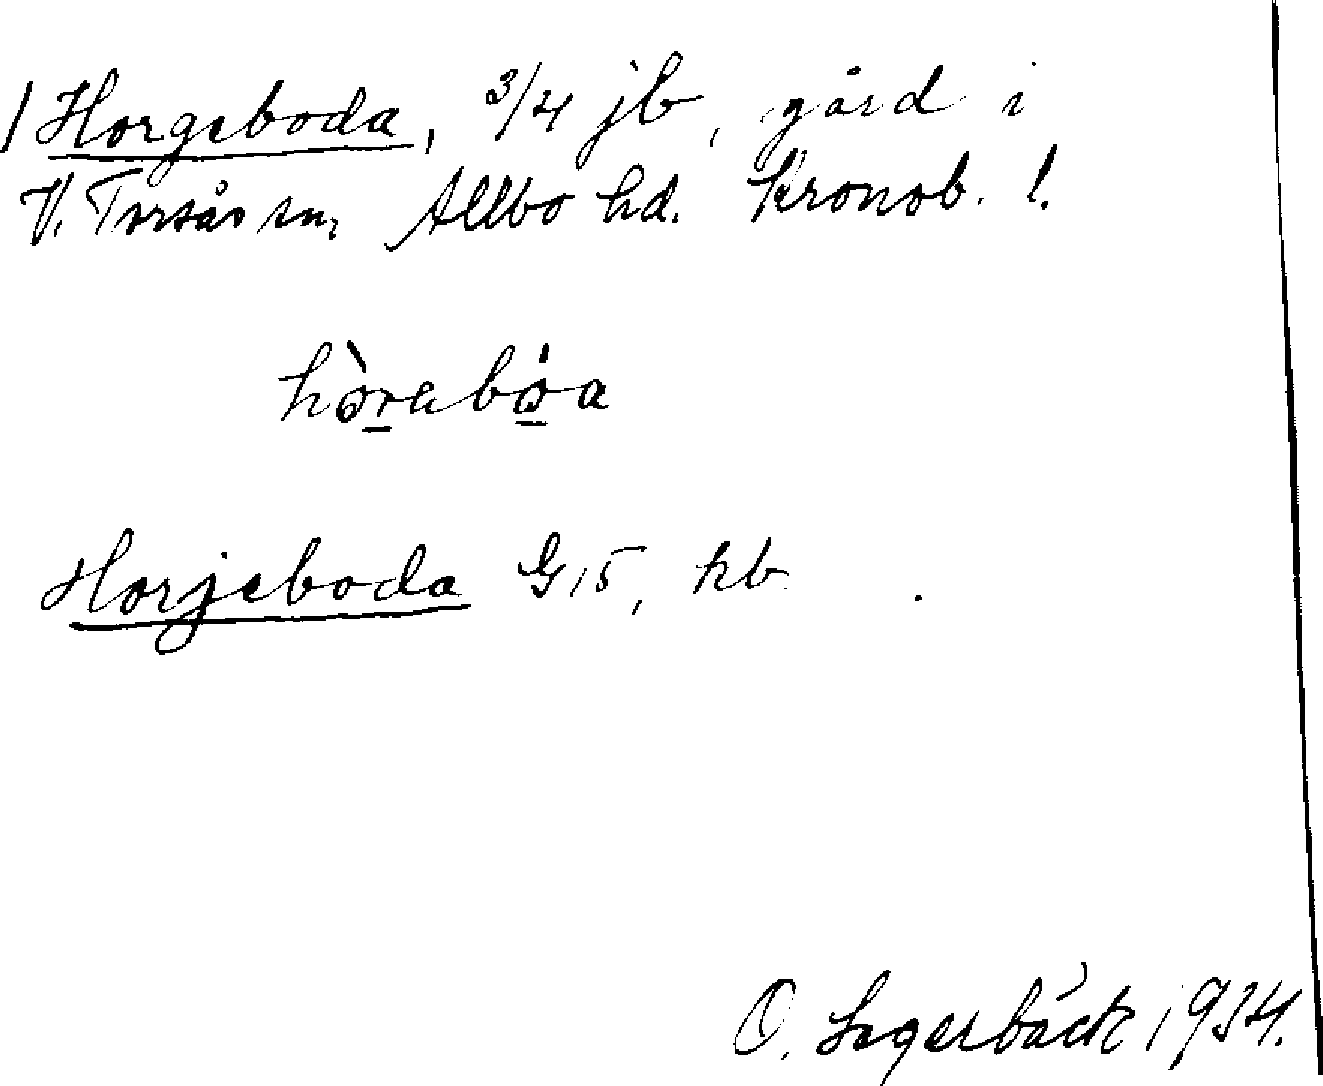 / Horgeboda, 3/4 jb, gård i
V. Torsås sn, Allbo hd. Kronob. l.
hòrabo̍a
Horjeboda G15, kb.
O. Lagerbäck 1934.